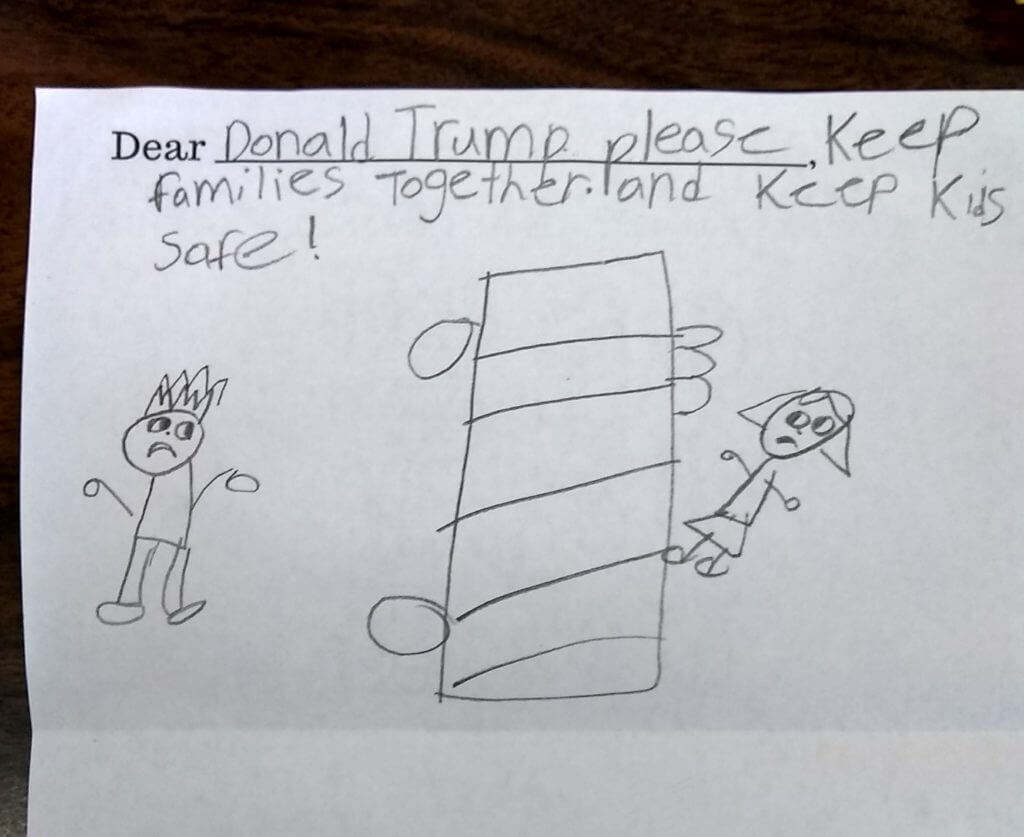 Dear Donald Trump please, Keep
families Together. and Keep Kids
safe!